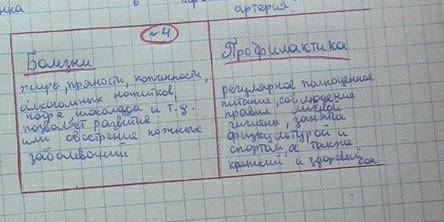 артерия
№4
Болезни
жиры, пряности, копченности,
алкогольных напитков,
кофе, шоколада и т.д.
позволяет развитие
или обострение кожных
заболеваний
Профилактика
регулярное полноценное
питание, соблюдение
правил личной
гигиены, занятие
физкультурой и
спортом, а также
крепкий и здоровый
сон